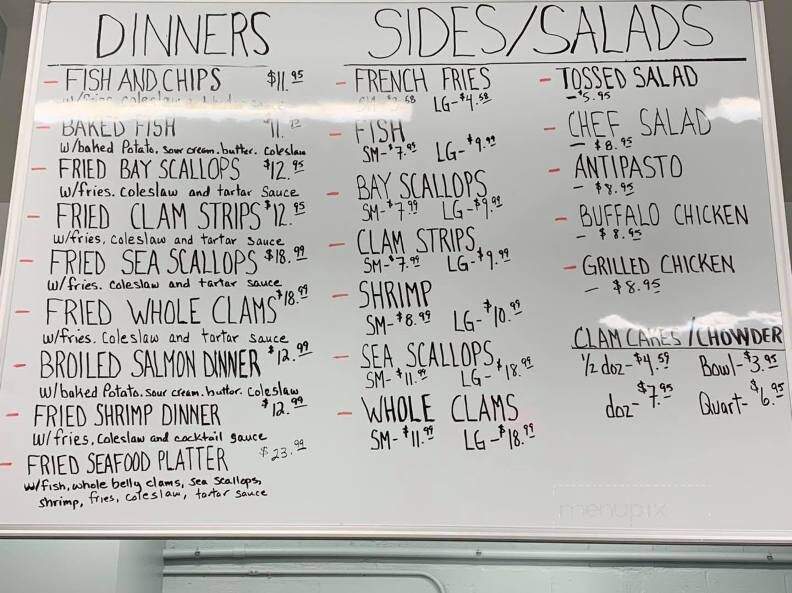 DINNERS
- FISH AND CHIPS $11.95
w/fries coleslaw
- BAKED FISH 11.
w/baked Potato. sour cream. butter. Coleslaw
- FRIED BAY SCALLOPS $12.95
w/fries. coleslaw and tartar sauce
- FRIED CLAM STRIPS $12.95
w/fries, coleslaw and tartar sauce
- FRIED SEA SCALLOPS $18.99
w/fries. coleslaw and tartar sauce
- FRIED WHOLE CLAMS $18.99
w/fries. Coleslaw and tartar sauce
- BROILED SALMON DINNER $12.99
w/baked Potato. sour cream. butter. Coleslaw
- FRIED SHRIMP DINNER $12.99
w/fries, coleslaw and cocktail sauce
- FRIED SEAFOOD PLATTER $23.99
w/fish, whole belly clams, sea scallops,
shrimp, fries, coleslaw, tartar sauce
SIDES/SALADS
- FRENCH FRIES
LG-$4.58
- FISH
SM-$7.99 LG-$9.99
- BAY SCALLOPS
SM-$7.99 LG-$9.99
- CLAM STRIPS
SM-$7.99 LG-$9.99
- SHRIMP
SM-$8.99 LG-$10.99
- SEA SCALLOPS
SM-$11.99 LG-$18.99
- WHOLE CLAMS
SM-$11.99 LG-$18.99
- TOSSED SALAD
- $5.95
- CHEF SALAD
- $8.95
- ANTIPASTO
- $8.95
- BUFFALO CHICKEN
- $8.95
- GRILLED CHICKEN
- $8.95
CLAM CAKES/CHOWDER
1/2 doz-$4.59 Bowl-$3.95
doz-$7.95 Quart-$6.95
menupix